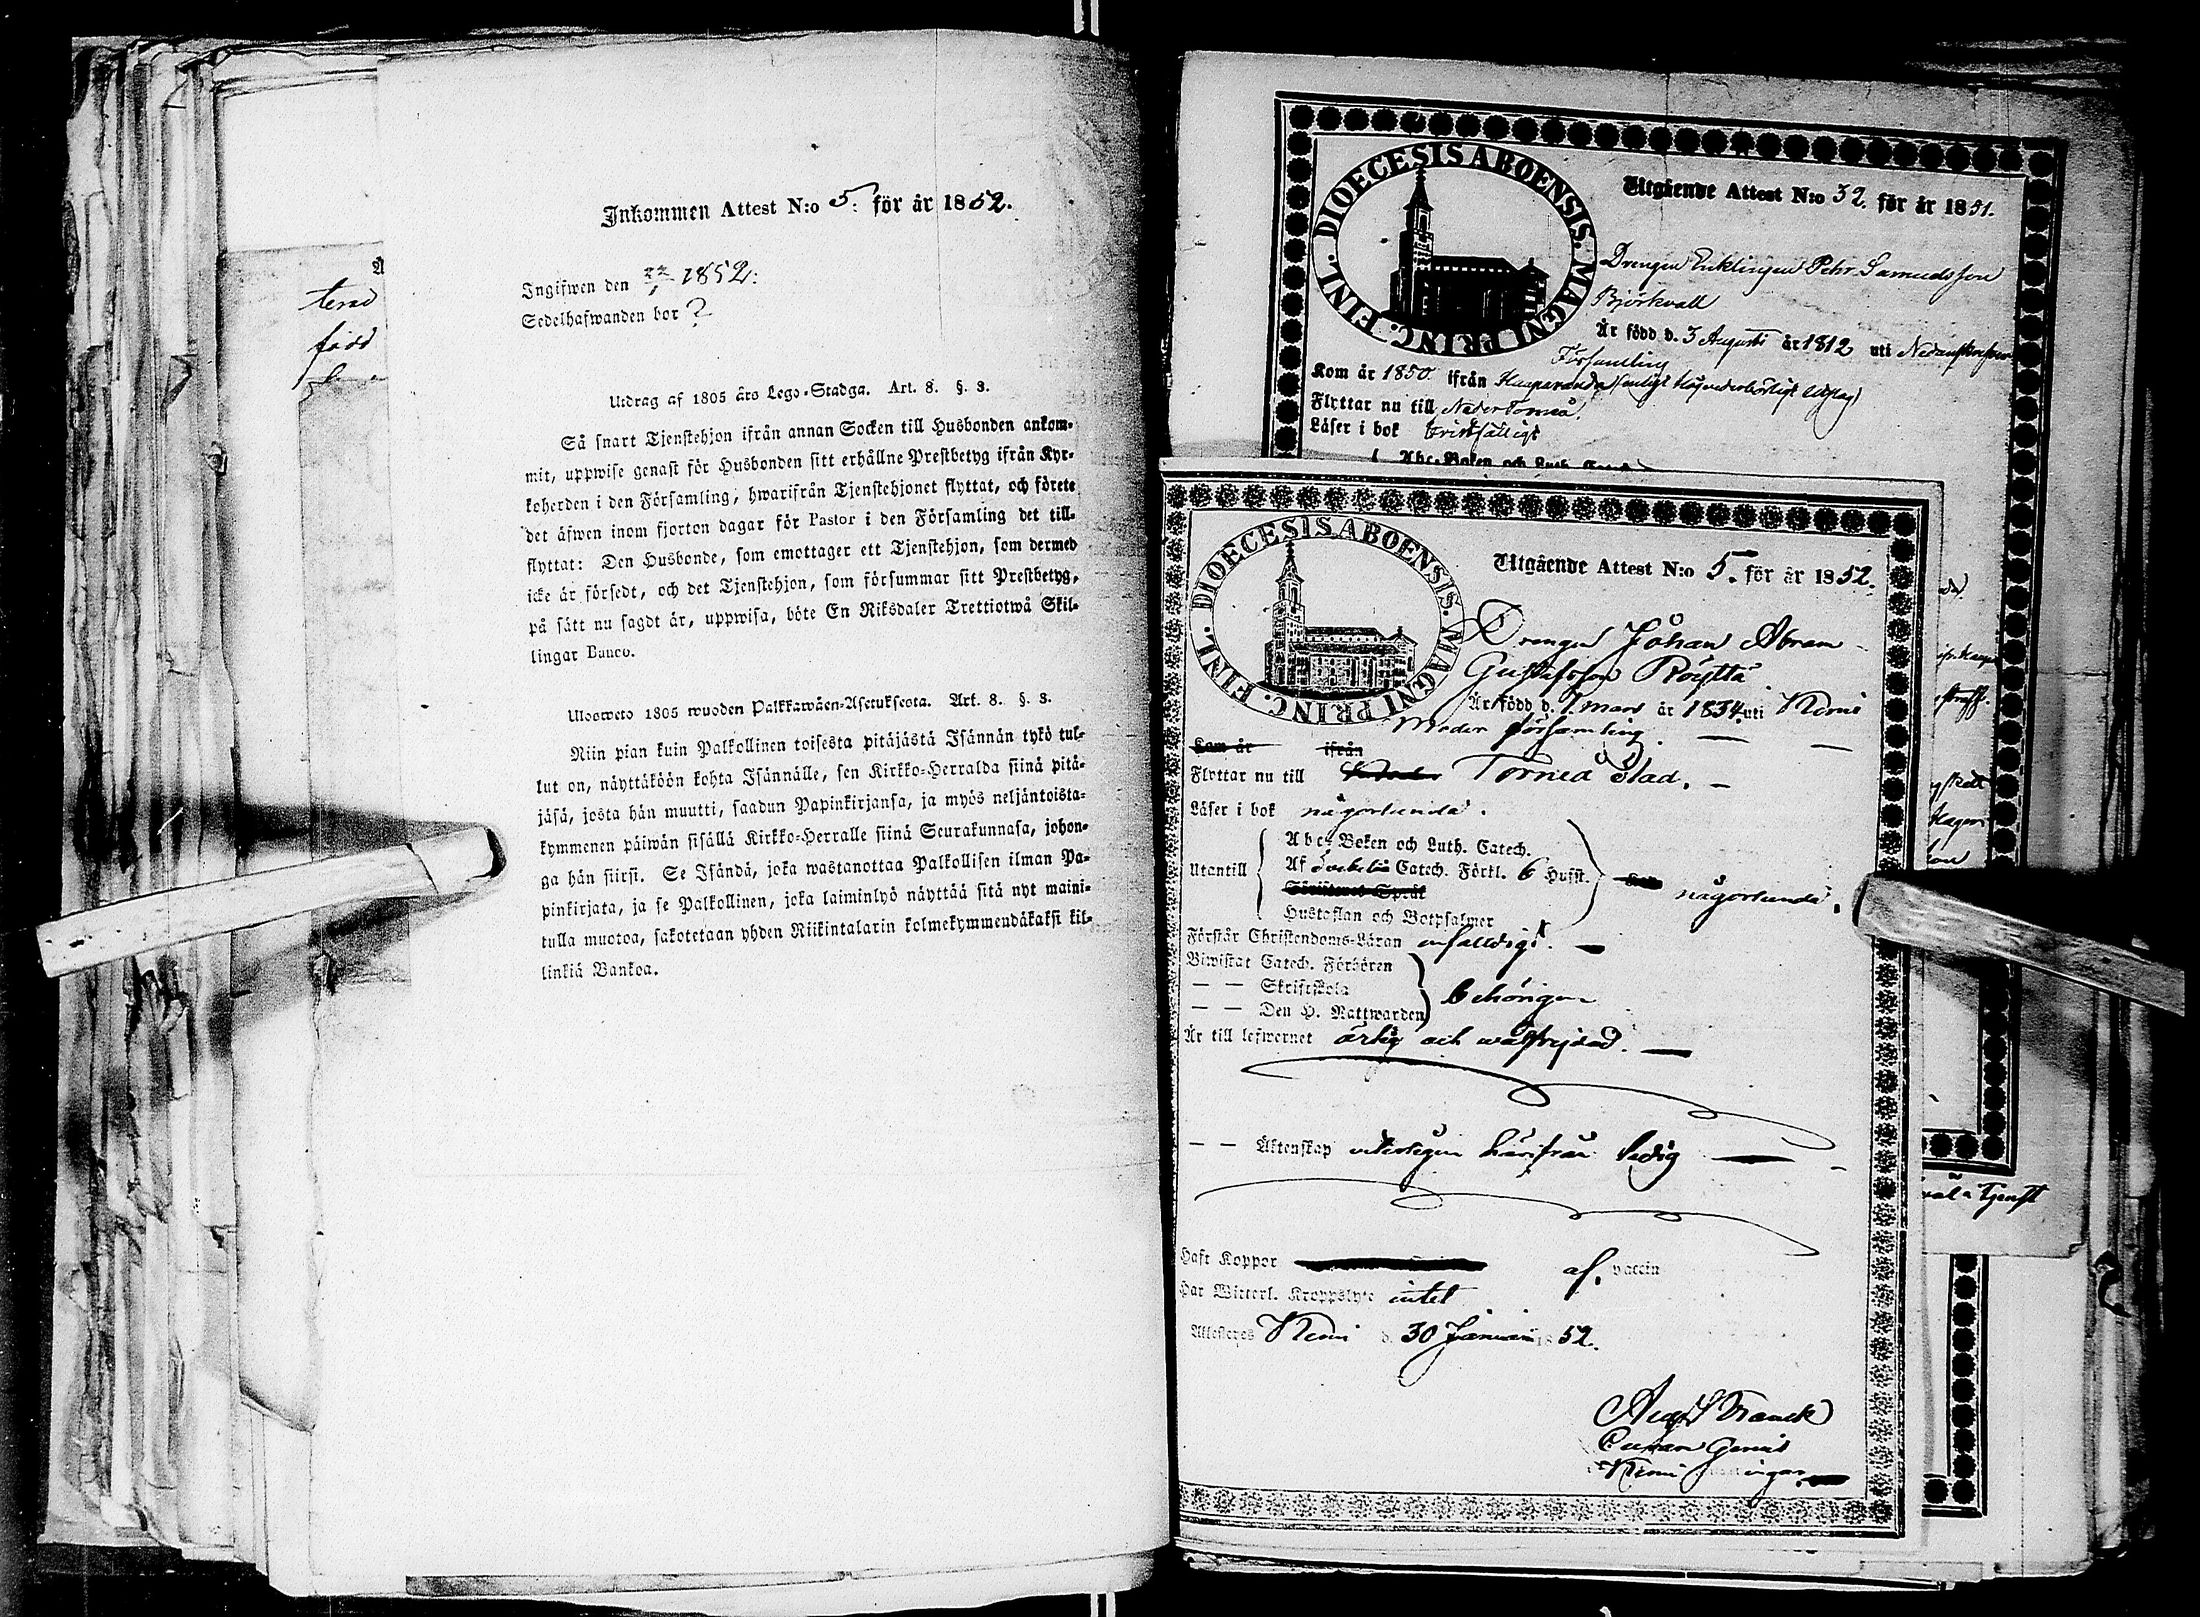 Inkommen Attest N:o 5. för år 1852.
Ingifwen den 1852.
Sedelhafwanden bor ?
Utdrag af 1805 års Lego-Stadga. Art. 8. §. 3.
Så snart Tjenstehjon ifrån annan Socken till Husbonden ankom-
mit, uppwise genast för Husbonden sitt erhållne Prestbetyg ifrån Kyr-
koherden i den Församling, hwarifrån Tjenstehjonet flyttat, och förete
det äfwen inom fjorton dagar för Pastor i den Församling det till-
flyttat: Den Husbonde, som emottager ett Tjenstehjon, som dermed
icke är försedt, och det Tjenstehjon, som försummar sitt Prestbetyg,
på sätt nu sagdt är, uppwisa, böte En Riksdaler Trettiotwå Skil-
lingar Banco.
Ulosweto 1805 wuoden Palkkawäen-Asetuksesta. Art. 8. §. 3.
Niin pian kuin Palkollinen toisesta pitäjästä Isännän tykö tul-
lut on, näyttäköön kohta Isännälle, sen Kirkko-Herralda siinä pitä-
jäsä, josta hän muutti, saadun Papinkirjansa, ja myös neljäntoista-
kymmenen päiwän sisällä Kirkko-Herralle siinä Seurakunnasa, johon-
ga hän siirsi. Se Isändä, joka wastanottaa Palkollisen ilman Pa-
pinkirjata, ja se Palkollinen, joka laiminlyö näyttää sitä nyt maini-
tulla muotoa, sakotetaan yhden Riikintalarin kolmekymmendäkaksi kil-
linkiä Bankoa.
terad
född
DIOECESIS ABOENSIS. MAGNI PRINC. FINL.
Utgående Attest N:o 32. för år 1851.
Drengen Enklingen Pehr Samuelsson
Björkvall
Är född d. 3 Augusti år 1812 uti
Församling
Kom år 1850 ifrån Haparanda
Flyttar nu till Neder Torneå.
Läser i bok
Abc-Boken och Luth.
DIOECESIS ABOENSIS. MAGNI PRINC. FINL.
Utgående Attest N:o 5. för år 1852.
Drengen Johan Abram
Gustafsson Röyttä
Är född d. 7 mars år 1834 uti Kemi
Moder församling
Kom år ifrån
Flyttar nu till Torneå Stad.
Läser i bok någorlunda.
Utantill
Abc-Boken och Luth. Catech.
Af Svebelii Catech. Förkl. 6 Hufst.
någorlunda.
Hustaflan och Botpsalmer
Förstår Christendoms-Läran enfaldigt.
Biwistat Catech. Förhören
— — Skriftskola
— — Den H. Nattwarden
behörigen
Är till lefwernet ärlig och wälfrejdad.
— — Äktenskap härifrån ledig
Haft Koppor af vaccin
Har Witterl. Kroppslyte intet
Attesteres Kemi d. 30 Januari 1852.
Kemi
tjenst